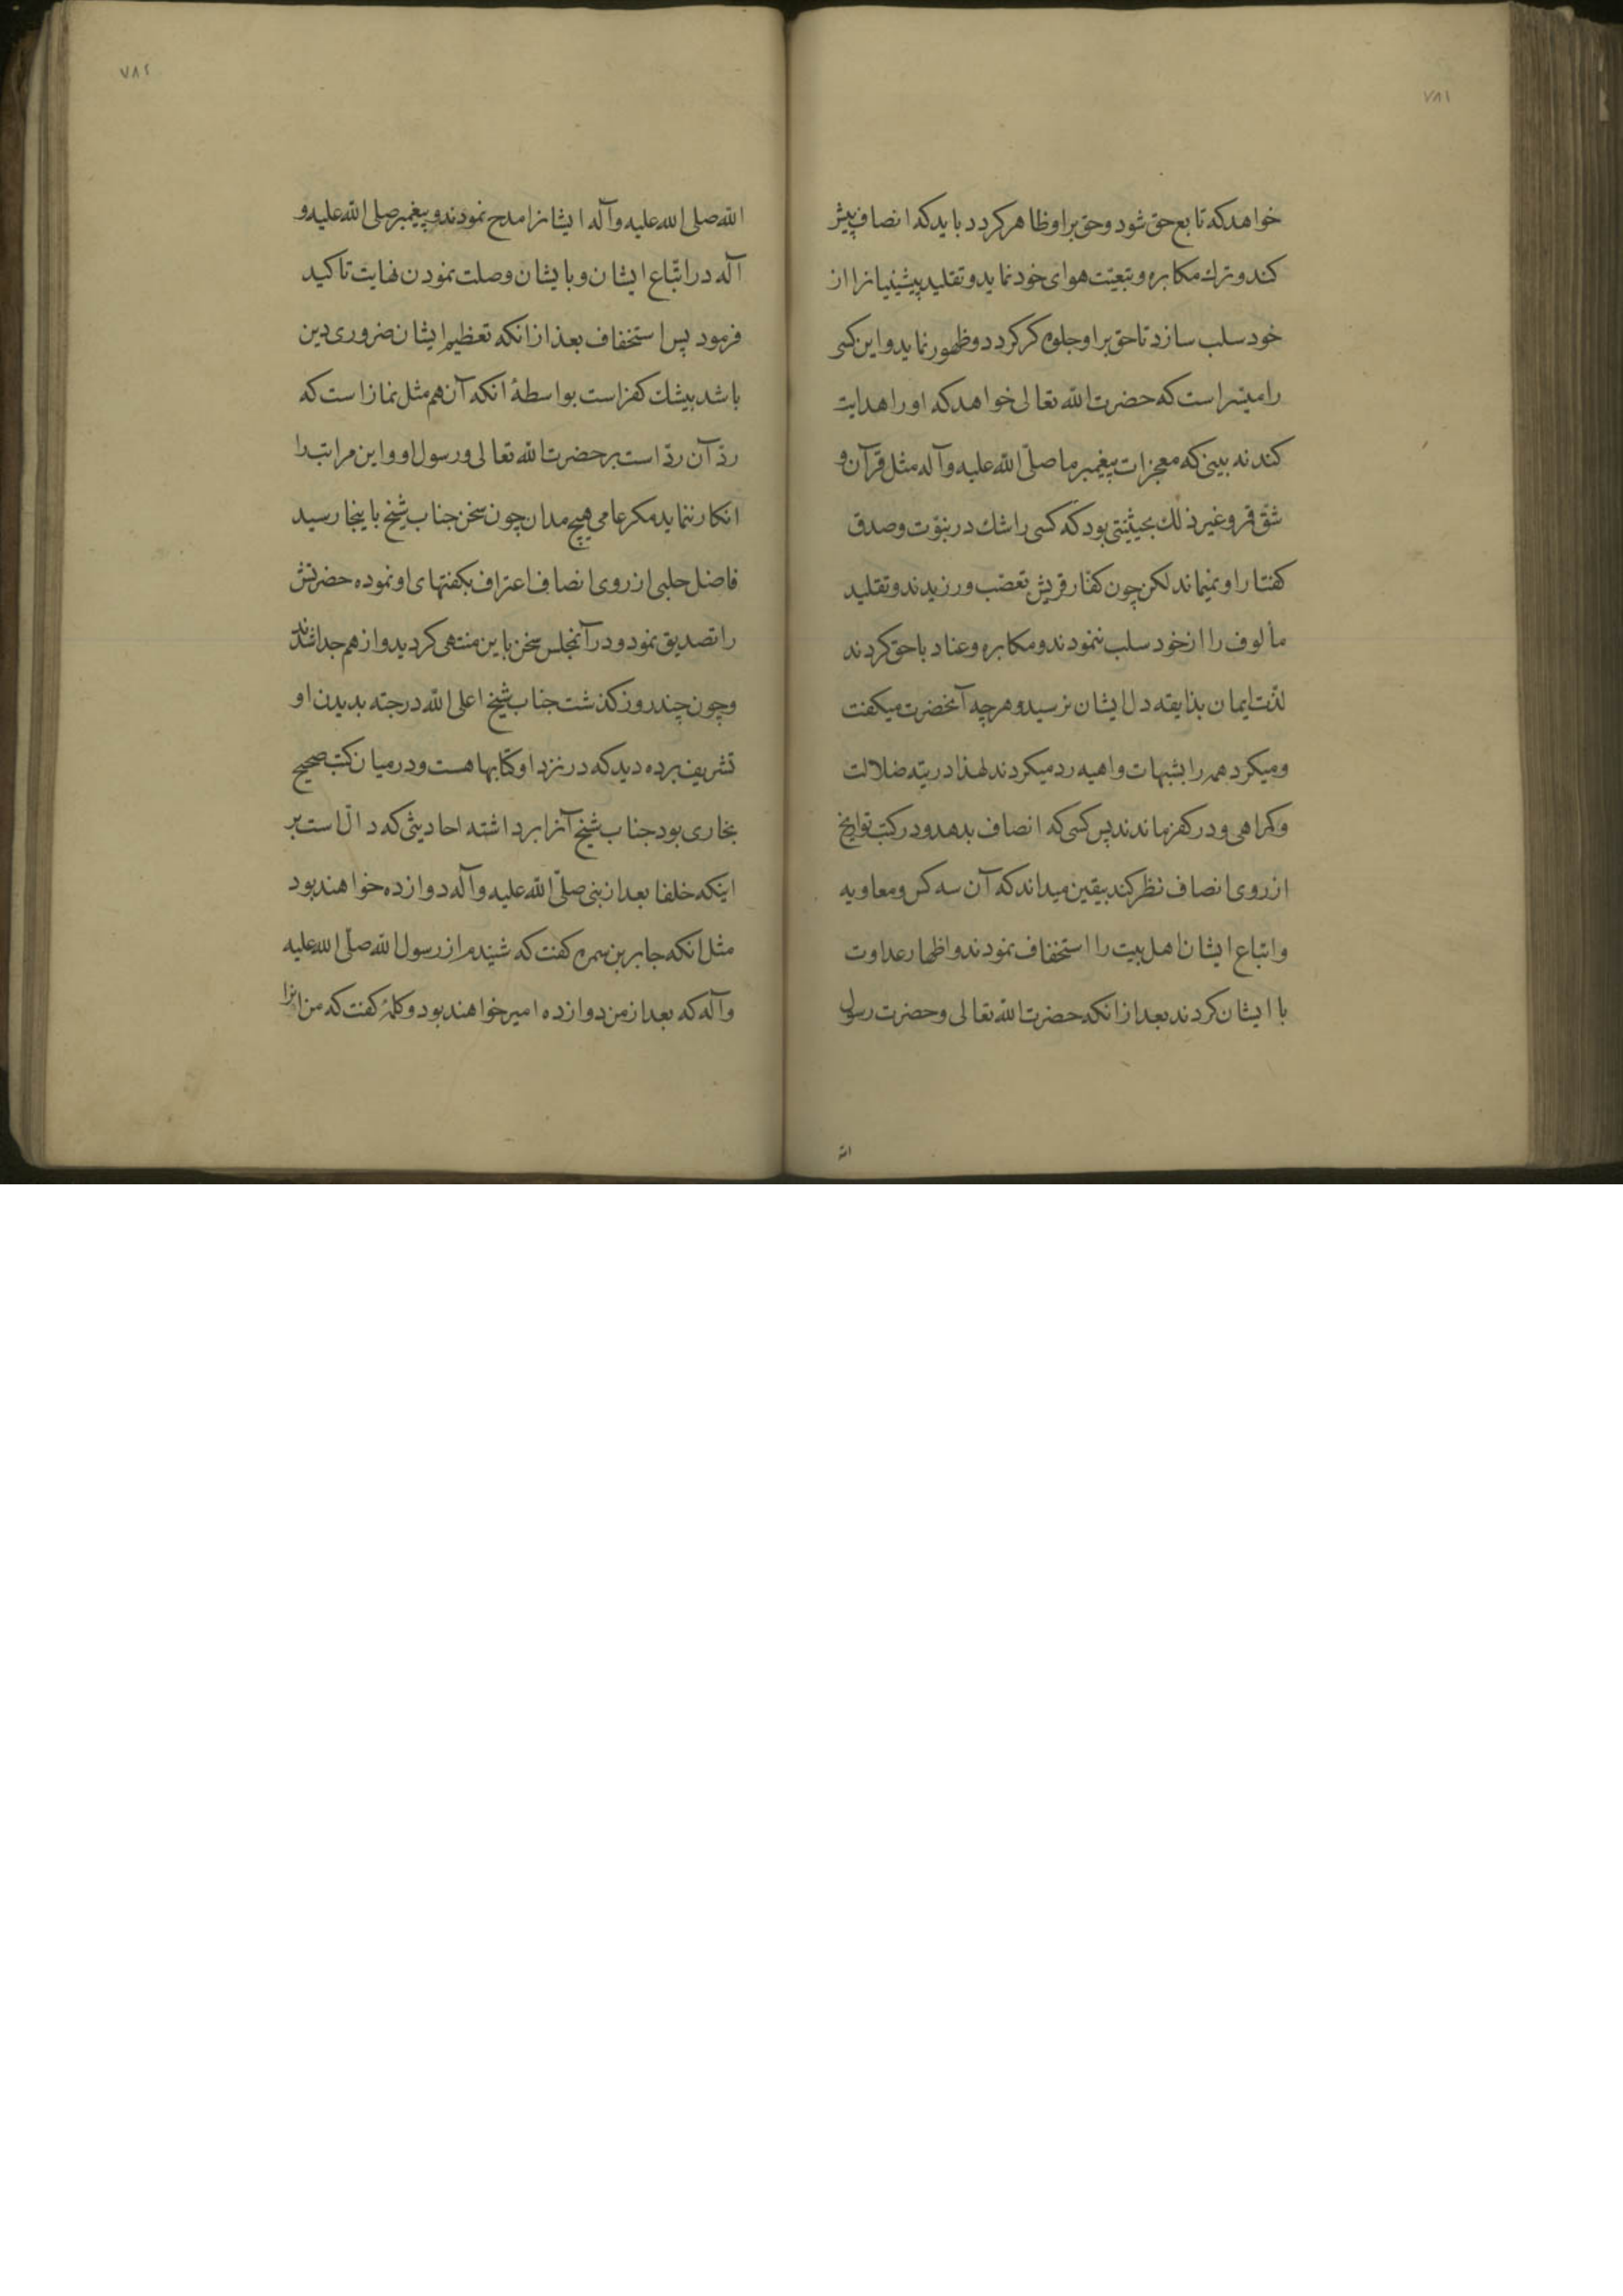 ٧٨١
خواهدکه تابع حق شود و حق براو ظاهر کردد باید که انصاف پیش
کند و ترك مکابره و تبعیّت هوای خود نماید و تقلید پیشینیانرا از
خود سلب سازد تا حق براو جلوه کر کردد و ظهور نماید و این کسی
را میسّر است که حضرت الله تعالی خواهد که او را هدایت
کند نه بینی که معجزات پیغمبر ما صلّی الله علیه وآله مثل قرآن و
شقّ قمر و غیر ذلك بحیثیّتی بود که کسی را شك در نبوّت و صدق
کفتار او نمیماند لکن چون کفّار قریش تعصّب ورزیدند و تقلید
مألوف را از خود سلب ننمودند و مکابره و عناد با حق کردند
لذّت ایمان بذایقه دل ایشان نرسید و هرچه آنحضرت میکفت
و میکرد همه را بشبهات واهیه رد میکردند لهذا در تیه ضلالت
و کمراهی و در کفر بماندند پس کسی که انصاف بدهد و در کتب تواریخ
از روی انصاف نظر کند بیقین میداند که آن سه کس و معاویه
و اتباع ایشان اهل بیت را استخفاف نمودند و اظهار عداوت
با ایشان کردند بعد از انکه حضرت الله تعالی و حضرت رسول
الله
٧٨٢
الله صلی الله علیه وآله ایشانرا مدح نمودند و پیغمبر صلی الله علیه و
آله در اتّباع ایشان و با ایشان وصلت نمودن نهایت تاکید
فرمود پس استخفاف بعد از انکه تعظیم ایشان ضروری دین
باشد بیشك کفر است بواسطهٔ انکه آن هم مثل نماز است که
ردّ آن ردّ است بر حضرت الله تعالی و رسول او و این مراتب را
انکار ننماید مکر عامی هیچ مدان چون سخن جناب شیخ باینجا رسید
فاضل حلبی از روی انصاف اعتراف بکفتهای او نموده حضرتش
را تصدیق نمود و در آنمجلس سخن باین منتهی کردید و از هم جدا شدند
و چون چند روز کذشت جناب شیخ اعلی الله درجته بدیدن او
تشریف برده دید که در نزد او کتابها هست و در میان کتب صحیح
بخاری بود جناب شیخ آنرا برداشته احادیثی که دالّ است بر
اینکه خلفا بعد از نبی صلّی الله علیه وآله دوازده خواهند بود
مثل انکه جابر بن سمره کفت که شنیدم از رسول الله صلّی الله علیه
وآله که بعد از من دوازده امیر خواهند بود و کلمهٔ کفت که من انرا